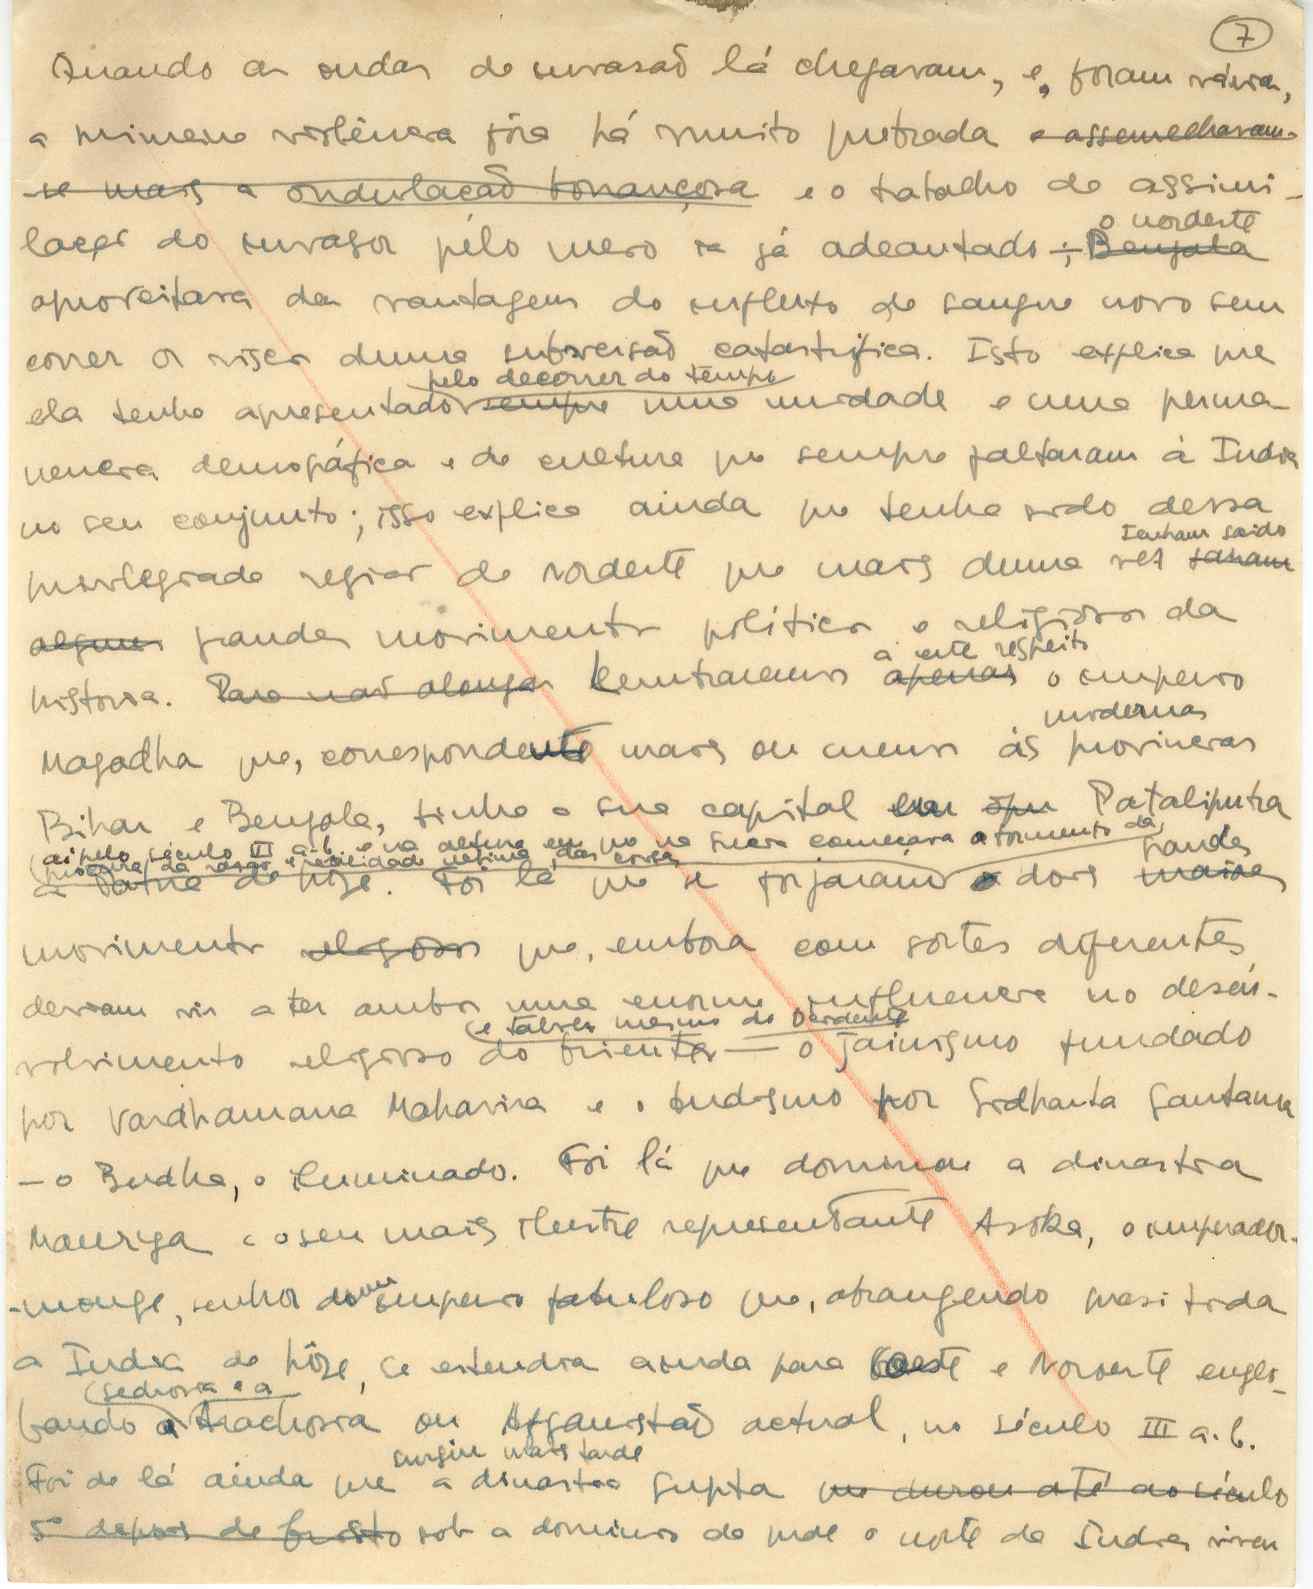 7
Quando as ondas de invasão lá chegavam, e, foram várias,
a primeira violência fôra há muito quebrada e assemelhavam-
se mais a ondulação bonançosa e o trabalho de assimi-
lação do invasor pelo meio ia já adeantado; Bengala
o nordeste
aproveitava das vantagens do influxo de sangue novo sem
correr os riscos duma subversão catastrófica. Isto explica que
pelo decorrer do tempo
ela tenha apresentado sempre uma unidade e uma perma-
nencia demográfica e de cultura que sempre faltaram à India
no seu conjunto; isso explica ainda que tenha sido dessa
tenham saido
privilegiada região do nordeste que mais duma vez sairam
alguns grandes movimentos políticos e religiosos da
a este respeito
história. Para não alongar lembraremos apenas o imperio
modernas
Magadha que, correspondente mais ou menos às provincias
Bihar e Bengala, tinha a sua capital em Pataliputra
aí pelo século III a.C. e na altura em que na começava o tormento da
procura da razão e realidade ultima das coisas
a Patna de hoje. Foi lá que se forjaram os dois maiores
grandes
movimentos religiosos que, embora com sortes diferentes,
deviam vir a ter ambos uma enorme influencia no desen-
(e talvez mesmo do Ocidente
volvimento religioso do Oriente — o jainismo fundado
por Vardhamana Mahavira e o budismo por Sidharta Gautama
— o Budha, o iluminado. Foi lá que dominou a dinastia
Maurya e o seu mais ilustre representante Asoka, o imperador-
-monge, senhor dum imperio fabuloso que, abrangendo quasi toda
a India de hoje, se estendia ainda para Oeste e Noroeste englo-
(Gedrosia e a
bando a Arachosia ou Afganistão actual, no século III a.C.
surgiu mais tarde
Foi de lá ainda que a dinastia Gupta que durou até ao século
5º depois de Cristo sob a dominio da qual o norte da India viveu